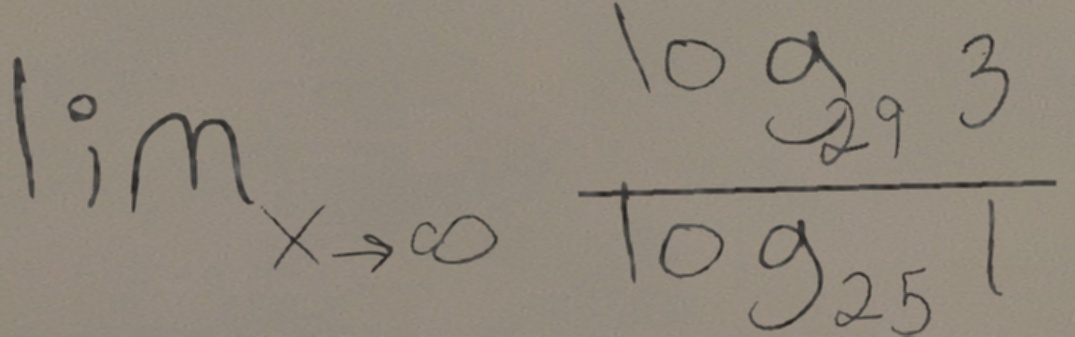 lim_{x→∞} \frac{log_{29} 3}{log_{25} 1}